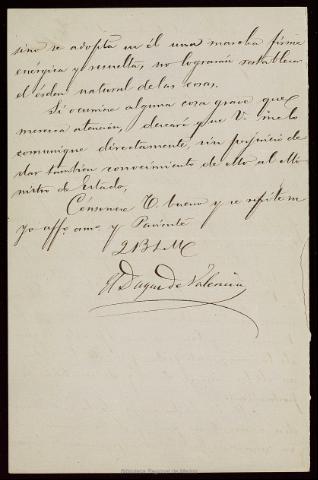 sino se adopta en él una marcha firme
enérgica y resuelta, no lograrán restablecer
el órden natural de las cosas.
Si ocurriese alguna cosa grave que
merezca atención, desearé que V. me lo
comunique directamente, sin perjuicio de
dar tambien conocimiento de ello al Mi
nistro de Estado,
Consérvese V. bueno y se repite su
affº. amº y Pariente
Q B S M
El Duque de Valencia
Biblioteca Regional de Madrid